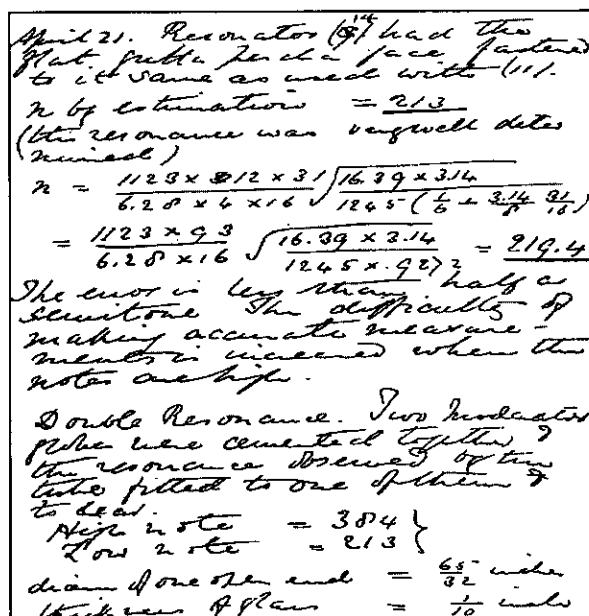 April 21. Resonator (14) had the
flat gutta percha face fastened
to it same as used with (11).
n by estimation = 213
(the resonance was very well deter
mined)
n = 1123 × 12 × 31 / 6.28 × 4 × 16 √ 16.39 × 3.14 / 1245 ( 1/6 + 3.14/8 31/16 )
= 1123 × 93 / 6.28 × 16 √ 16.39 × 3.14 / 1245 × .9272 = 219.4
The error is less than half a
semitone The difficulty of
making accurate measure-
ments is increased when the
notes are high.
Double Resonance. Two Moderator
globes were cemented together &
the resonance observed by the
tube fitted to one of them &
to ear.
High note = 384 }
Low note = 213
diam of one open end = 65/32 inches
thickness of glass = 1/10 inch